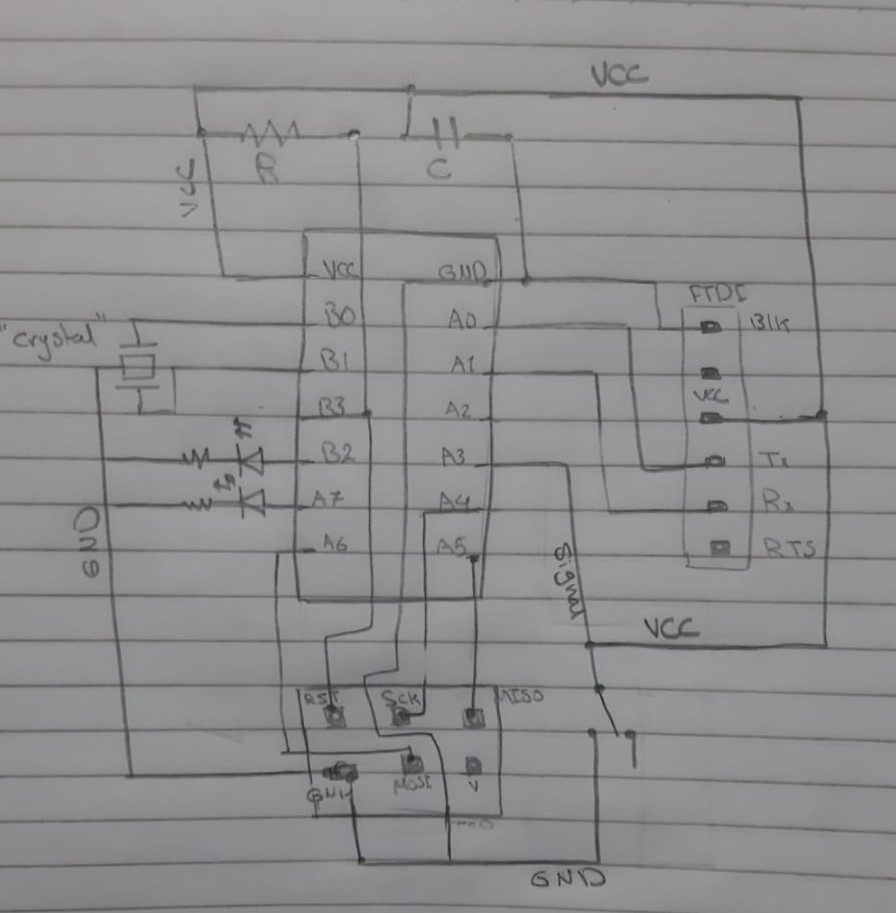 VCC
R
C
VCC
VCC
GND
FTDI
B0
A0
Blk
"crystal"
B1
A1
B3
A2
VCC
B2
A3
Tx
A7
A4
Rx
A6
A5
RTS
GND
Signal
VCC
RST
SCK
MISO
GND
MOSI
V
GND